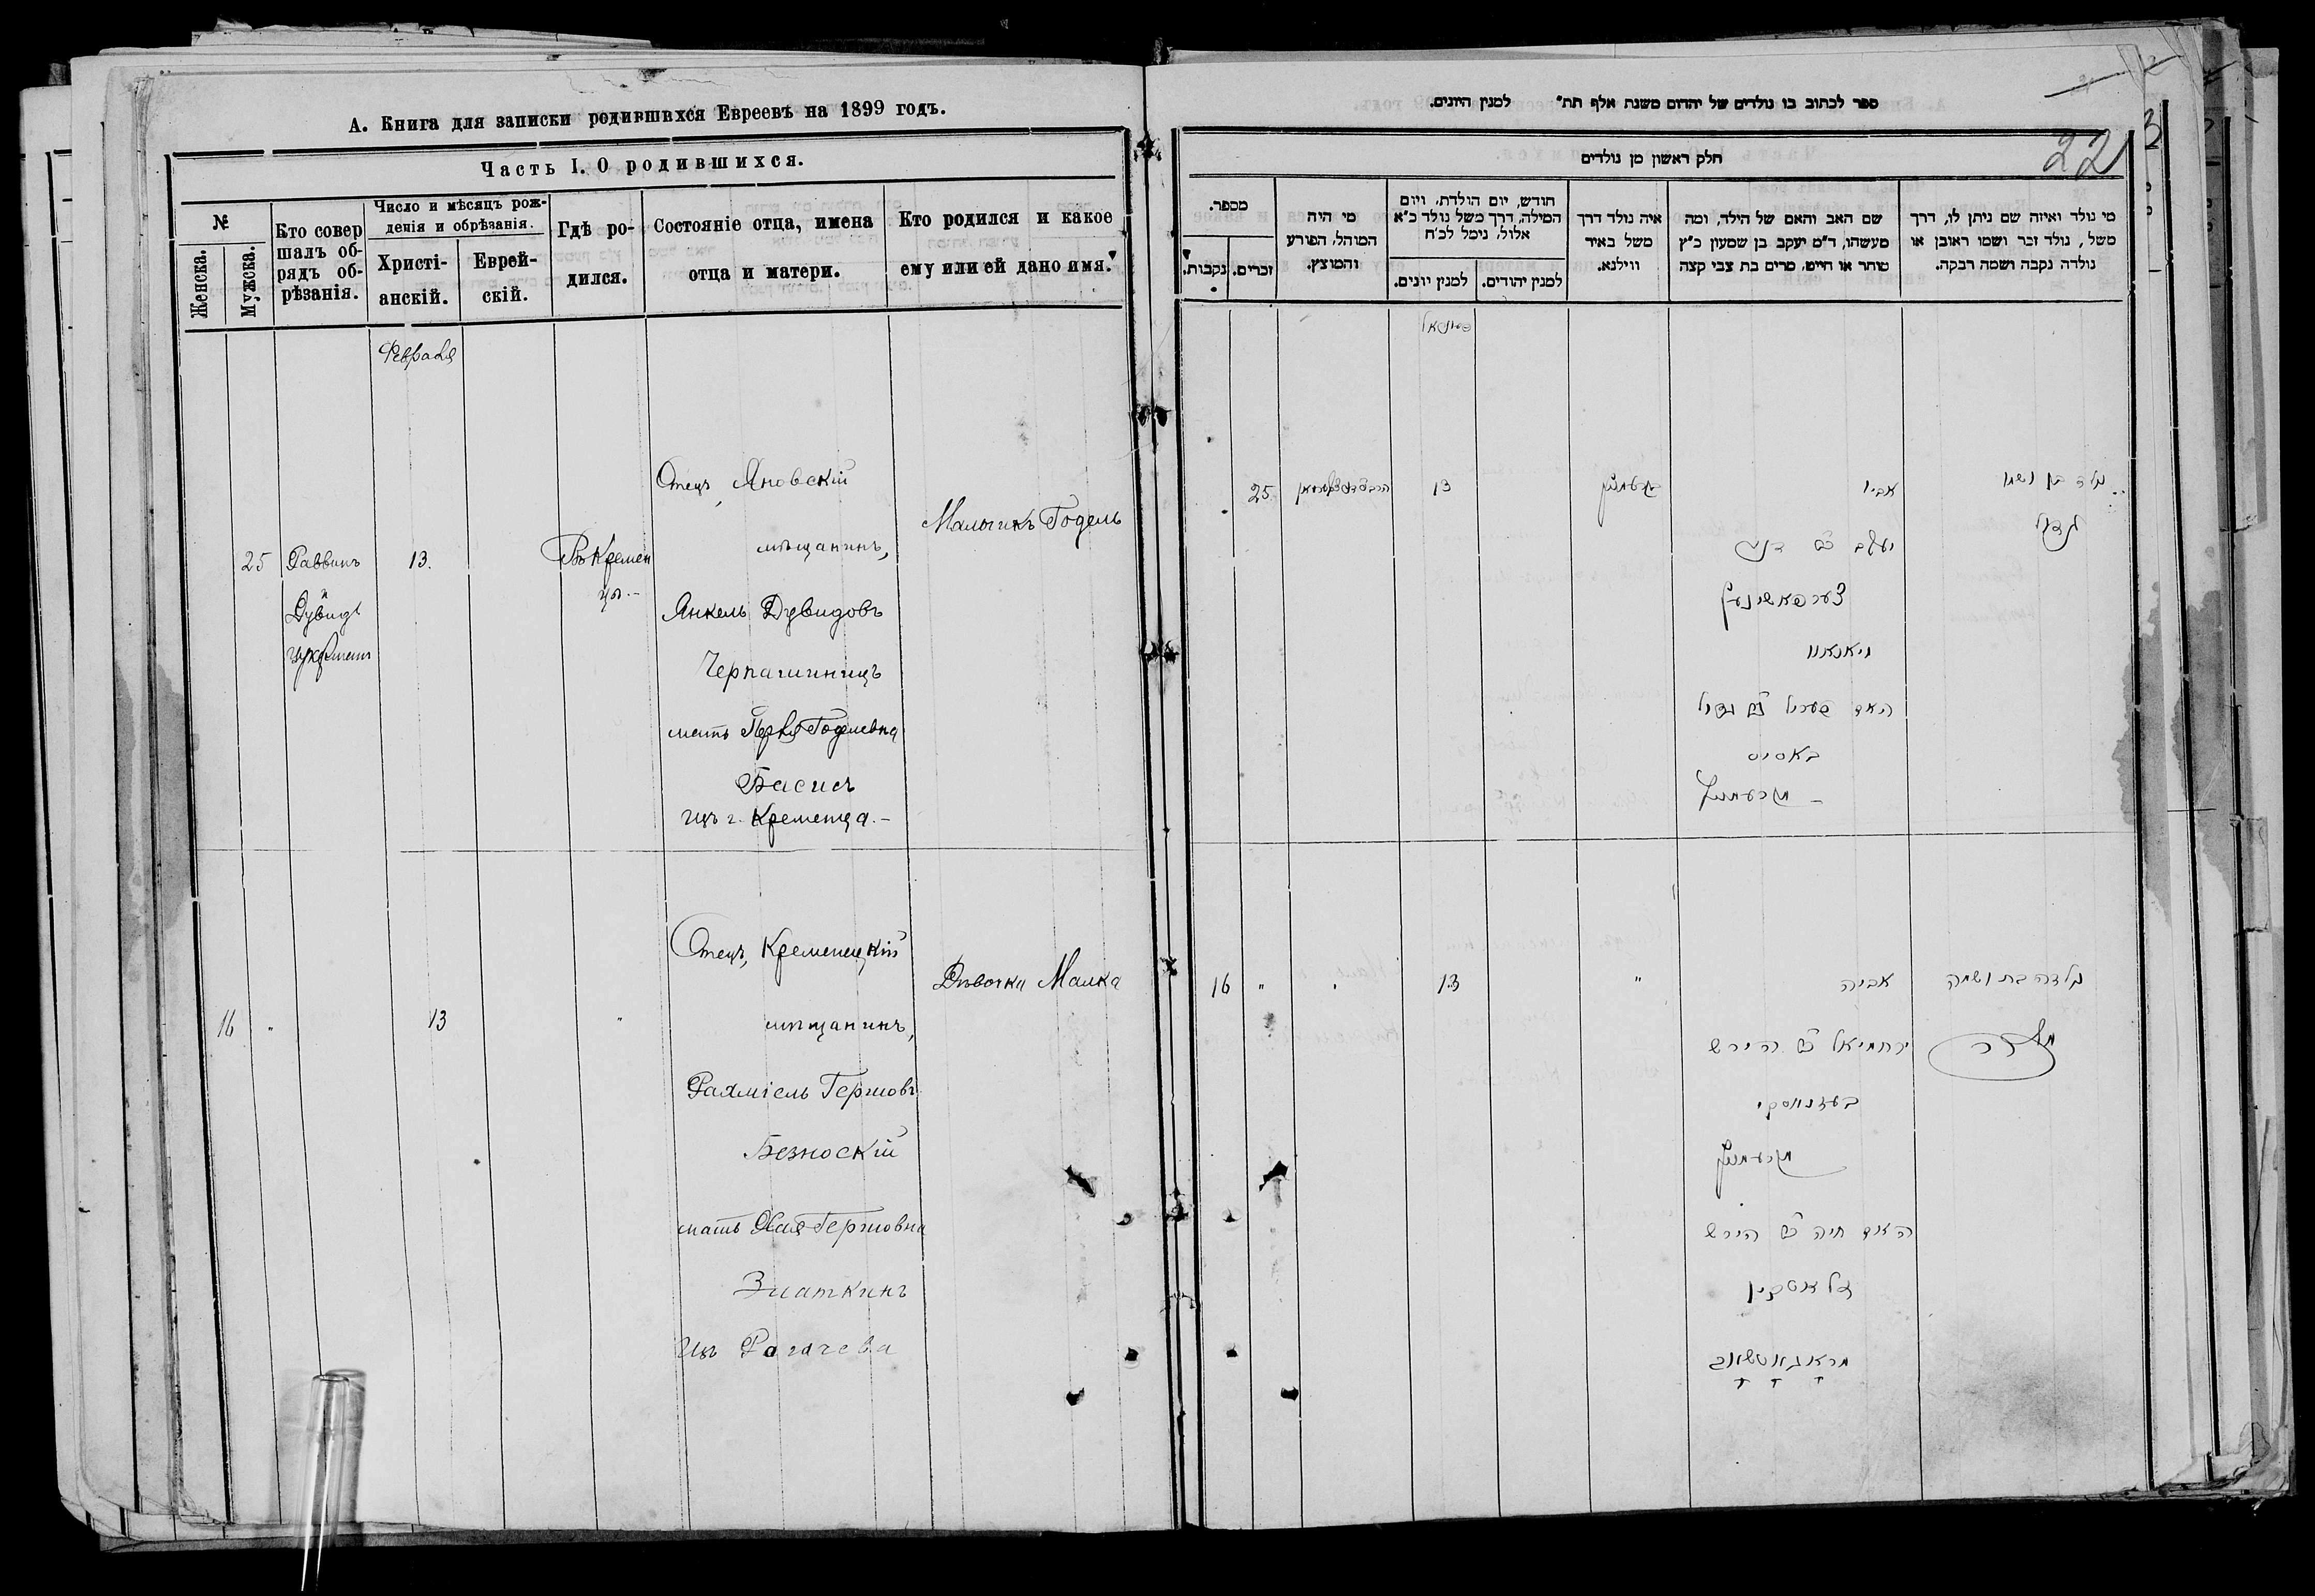 А. Книга для записки родившихся Евреевъ на 1899 годъ.
Часть I. О родившихся.
№
Женска.
Мужска.
Кто совер
шалъ об-
рядъ об-
рѣзанія.
Число и мѣсяцъ рож-
денія и обрѣзанія.
Христі-
анскій.
Еврей-
скій.
Гдѣ ро-
дился.
Состояніе отца, имена
отца и матери.
Кто родился и какое
ему или ей дано имя.
Февраля
25
Раввинъ
Дувидъ
13.
Въ Кремен
цѣ.-
Отецъ, Яновскій
мѣщанинъ,
Янкель Дувидовъ
Черпашинецъ
мать Перля Годелевна
Басисъ
изъ г. Кременца.-
Мальчикъ Годель
16
"
13
"
Отецъ, Кременецкій
мѣщанинъ,
Рахміель Гершовъ
Безноскій
мать Хая Гершовна
Златкинъ
Изъ Рагачева
Дѣвочка Малка
ספר לכתוב בו נולדים של יהדום משנת אלף תת" למנין היונים.
22
חלק ראשון מן נולדים
מספר.
נקבות.
זכרים.
מי היה
המוהל, הפורע
והמוצץ.
חודש, יום הולדת, ויום
המילה, דרך משל נולד כ"א
אלול, נימל לכ"ח
למנין יונים.
למנין יהודים.
איה נולד דרך
משל באיר
ווילנא.
שם האב והאם של הילד, ומה
מעשהו, ד"מ יעקב בן שמעון כ"ץ
סוחר או חייט, מרים בת צבי קצה
מי נולד ואיזה שם ניתן לו, דרך
משל, נולד זכר ושמו ראובן או
נולדה נקבה ושמה רבקה.
25
13
אביו
יעקב ב"ר דוד
צערפאשינעץ
באסיס
מקרעמניץ
נולד בן ושמו
גדל
16
"
13
"
אביה
ירחמיאל ב"ר הירש
בעזנוסקי
מקרעמניץ
האם חיה ב"ר הירש
זלאטקין
מראגאטשאוו
נולדה בת ושמה
מלכה